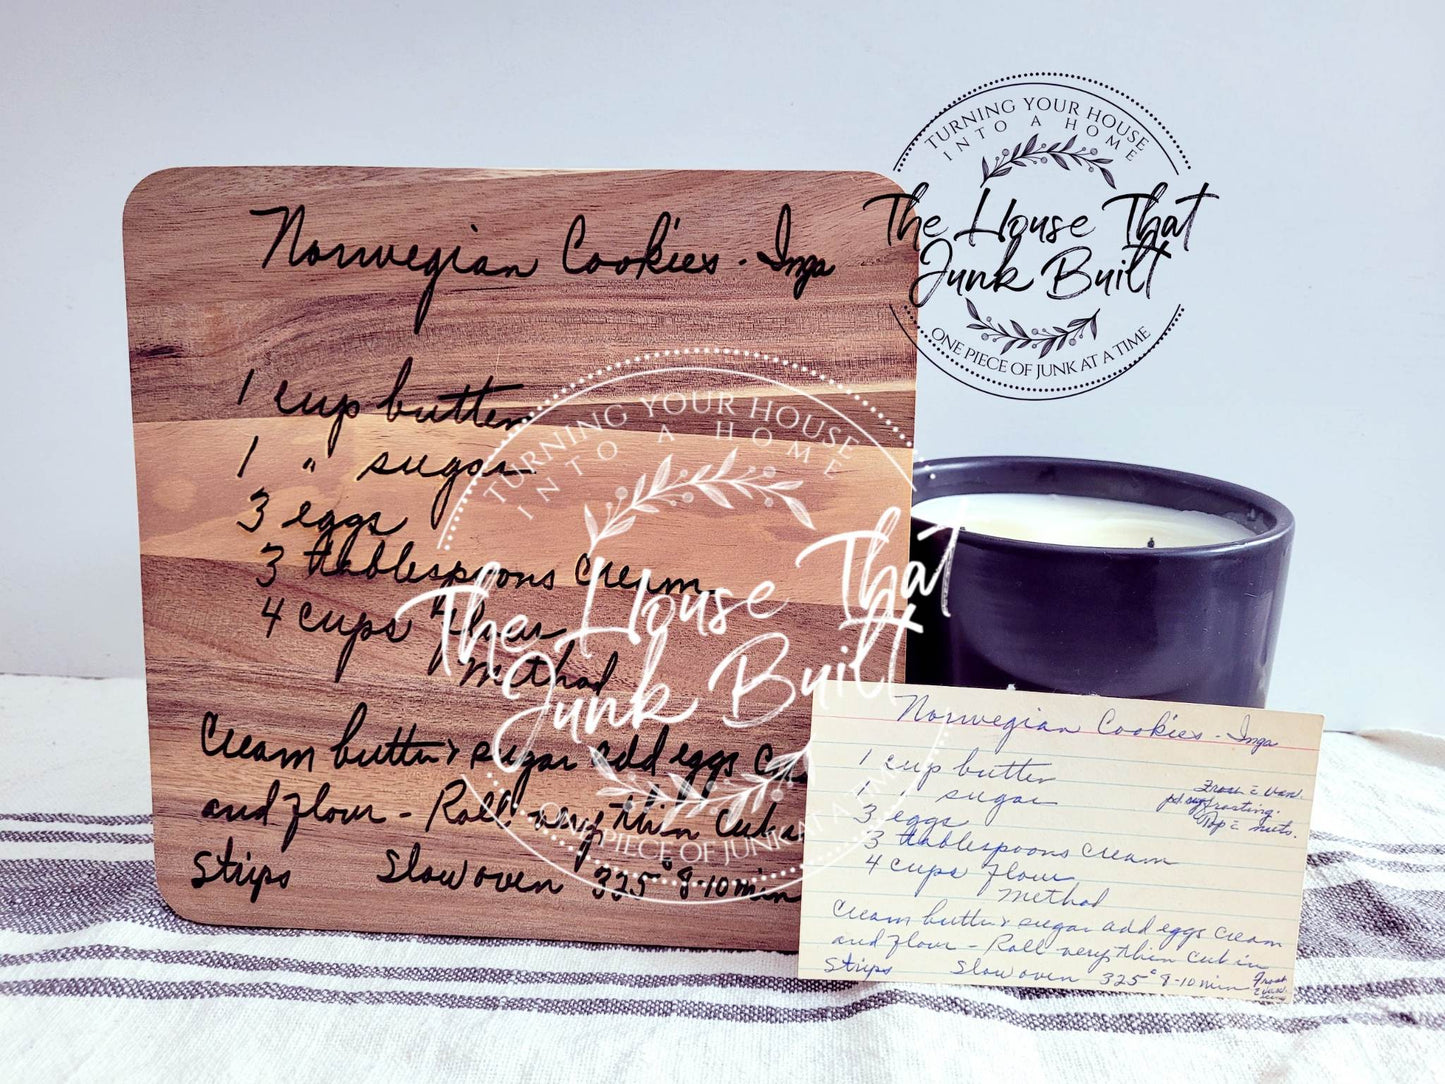 Norwegian Cookies - Inga
1 cup butter
1 " sugar
3 eggs
3 tablespoons cream
4 cups flour
Method
Cream butter & sugar add eggs
and flour - Roll very thin cut
strips Slow oven 325° 8-10 min
TURNING YOUR HOUSE
INTO A HOME
The House That
Junk Built
ONE PIECE OF JUNK AT A TIME
TURNING YOUR HOUSE
INTO A HOME
The House That
Junk Built
ONE PIECE OF JUNK AT A TIME
Norwegian Cookies - Inga
1 cup butter
1 " sugar
3 eggs
3 tablespoons cream
4 cups flour
Method
Cream butter & sugar add eggs cream
and flour - Roll very thin cut in
strips Slow oven 325° 8-10 min
frosting.
Top c̄ nuts.
Frost